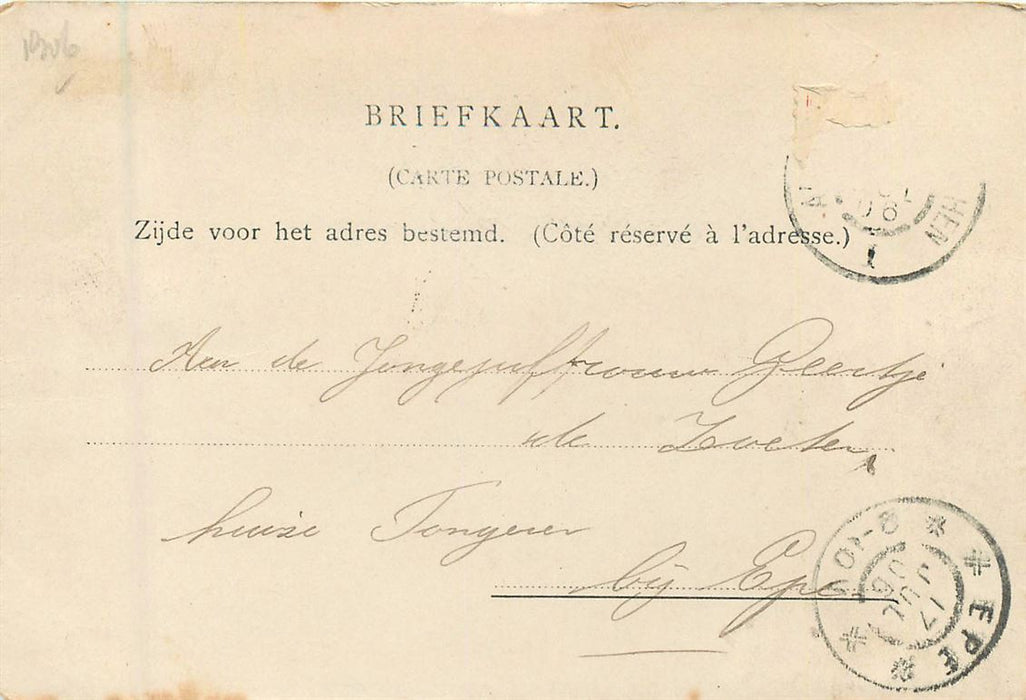 1906
BRIEFKAART.
(CARTE POSTALE.)
Zijde voor het adres bestemd. (Côté réservé à l'adresse.)
Aan de Jongejuffrouw Geertje
de Zweten
huize Tongeren
bij Epe
HEN
06
1
EPE
8-10V
17 JUL 06